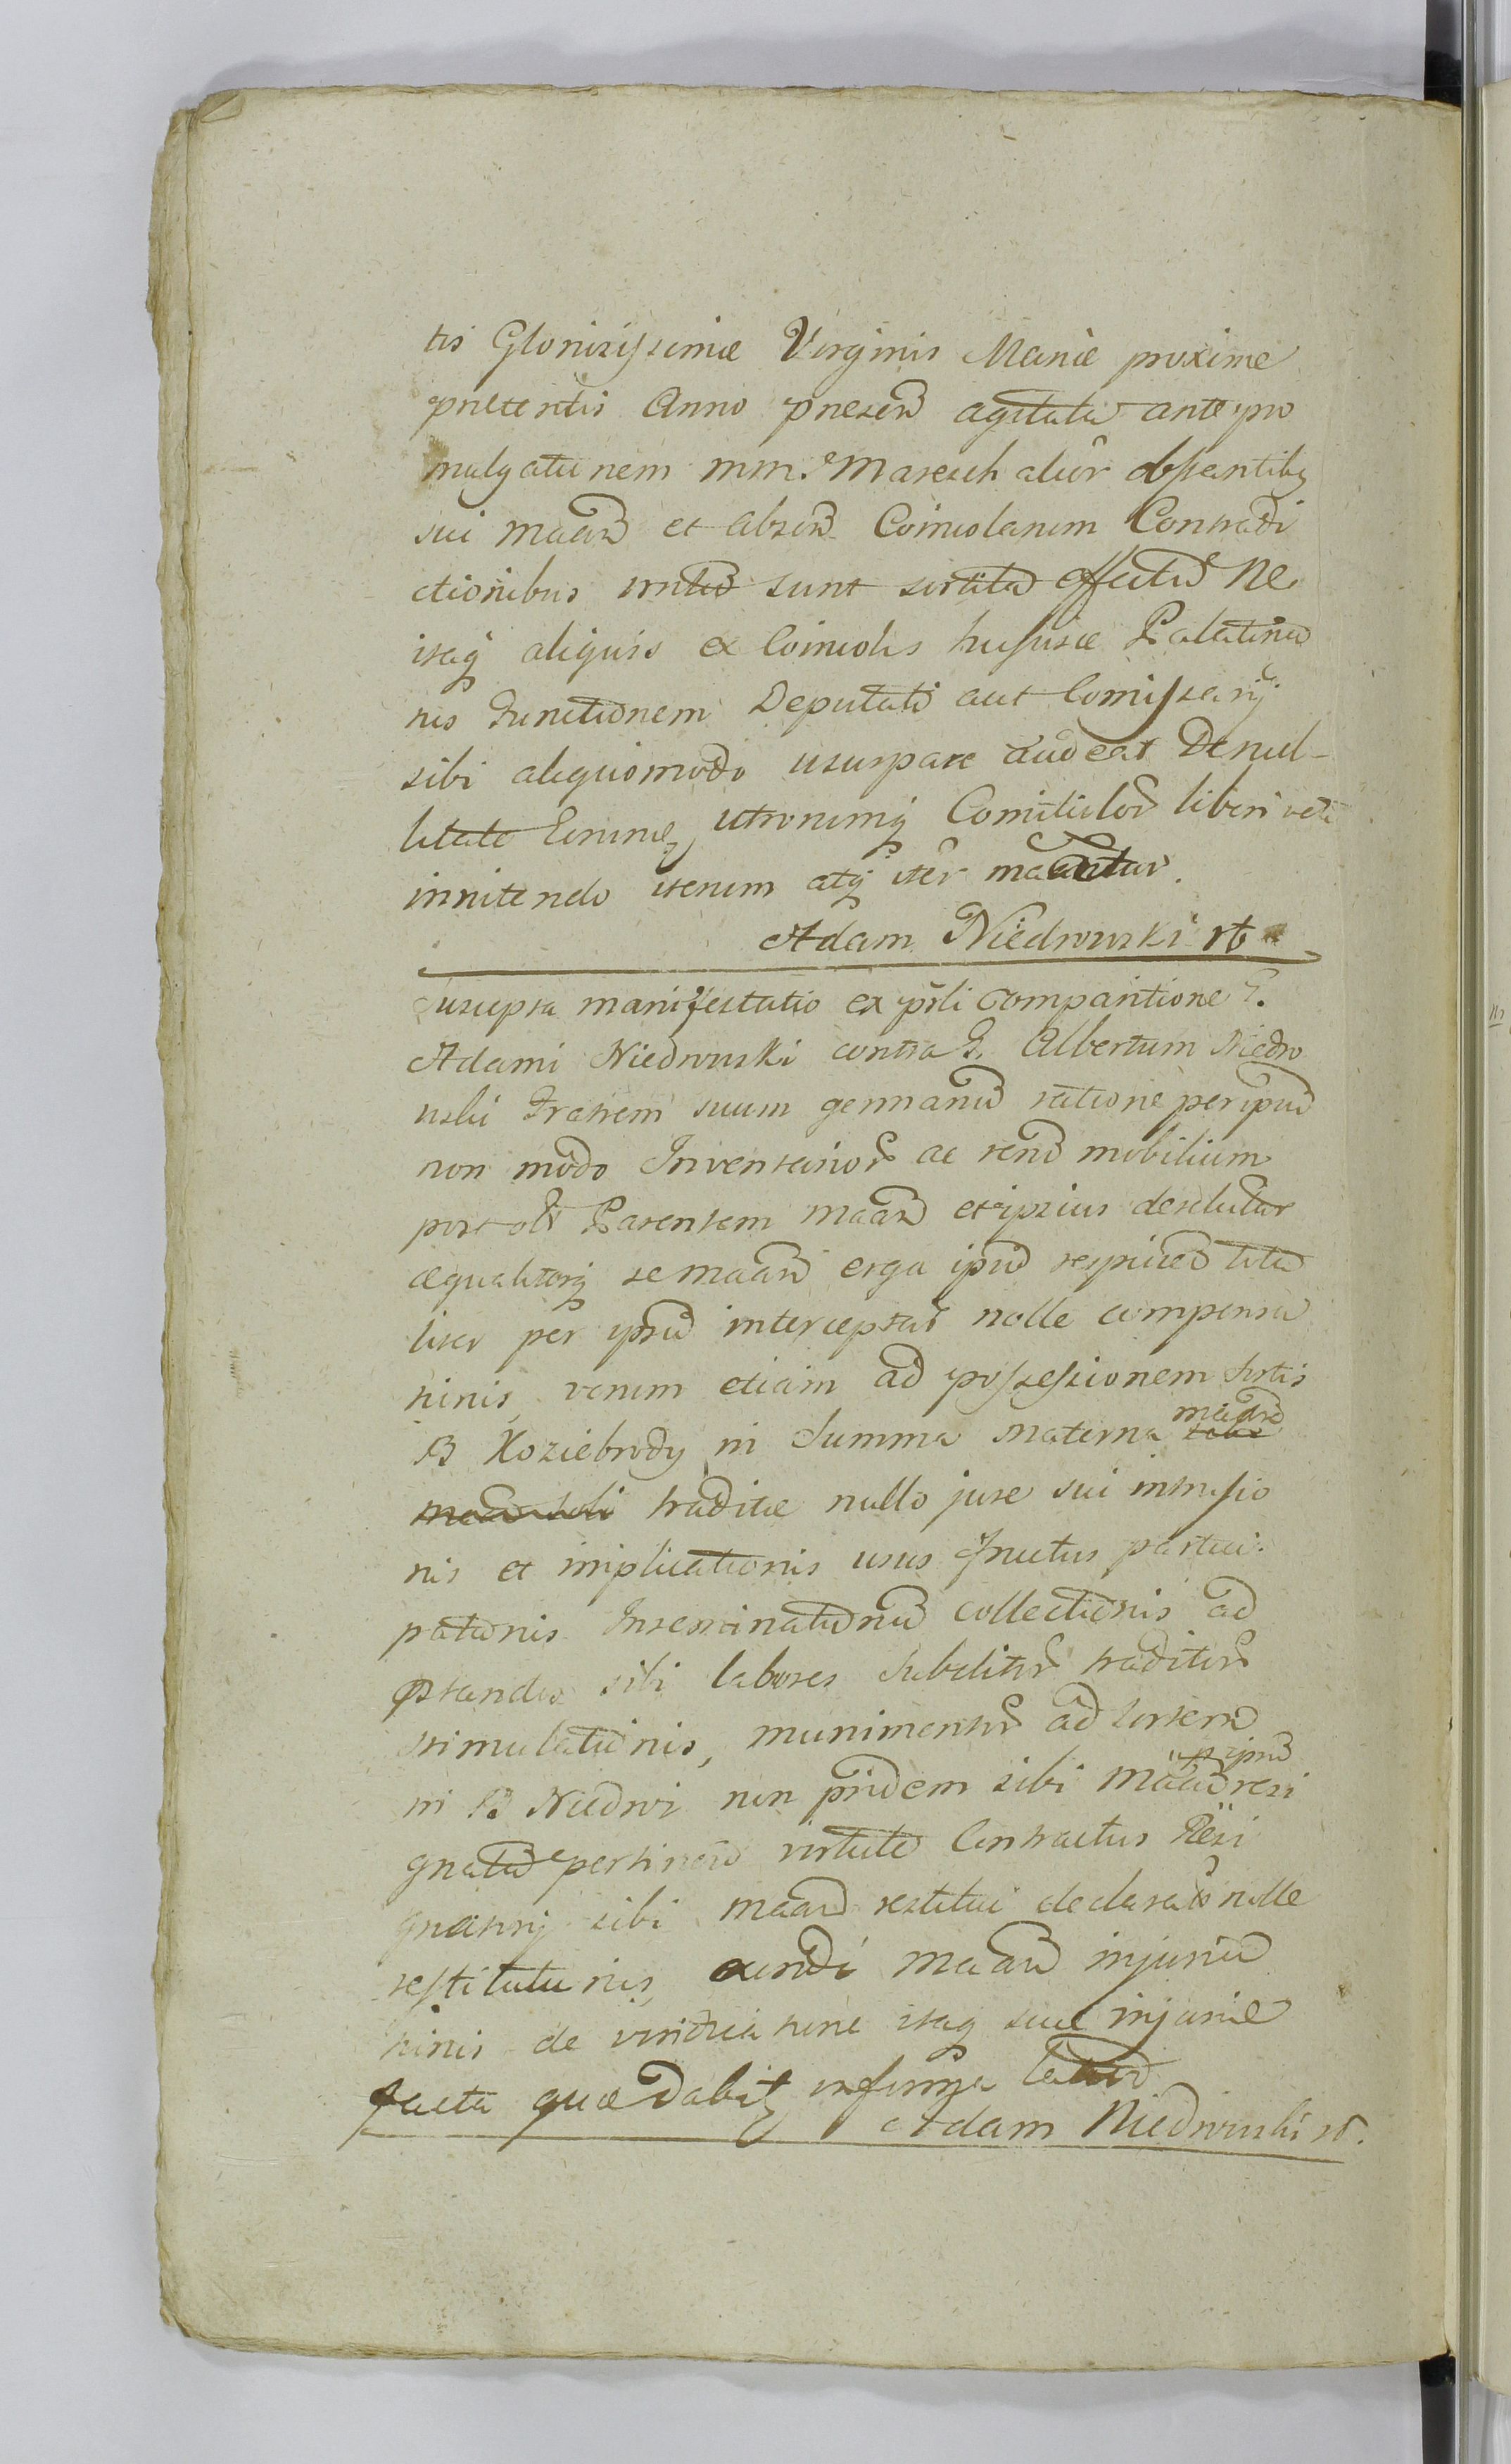 tis Gloriosissimæ Virginis Mariæ proxime
præteritis Anno præsen agitata ante pro
mulgationem mm. Mareschalcor obstantibus
sui Maan et absen Coincolarum Contradi
ctionibus sunt sortita effectu Ne
itaq aliquis ex Coincolis hujusce Palatina
tus Functionem Deputati aut Comissarij
sibi aliquomodo usurpare audeat De nul-
litate utronimq Comitiolor liberi veti
innitendo iterum atq iter maantur.
Adam Niedrowski
Suscepta manifestatio ex psli comparitione G.
Adami Niedrowski contra G. Albertum Niedro
wski Fratrem suum germanu ratione per ipsu
non modo Inventarior ac reru mobilium
post oli Parentem Maan et ipsius derelictar
æqualiterq se maan erga ipsu respicien tota
liter per ipsu interceptar nolle compensa
tionis, verum etiam ad possessionem sortis
B Koziebrody in Summa materna maan
traditæ nullo jure sui intrusio
nis et implicationis usus fructus partici-
pationis Inseminationu collectionis ad
præstandos sibi labores subditor traditor
stimulationis, munimentor ad sortem
in B Niedroz non pridem sibi Maan p ipsu resi
gnata pertinen virtute Contractus Resi
gnatorij sibi maan restitui declarator nolle
restitutionis, maan injuria
tionis de vindicatione itaq suæ injuriæ
facta quæ dabitq
Adam Niedrowski